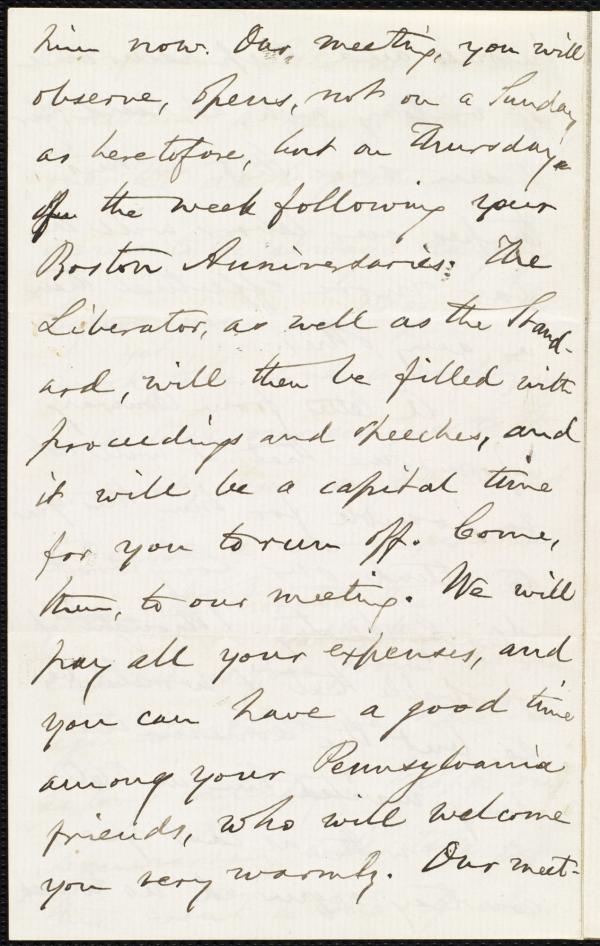 him now. Our meeting, you will
observe, opens, not on a Sunday,
as heretofore, but on Thursday,
the week following your
Boston Anniversaries. The
Liberator, as well as the Stand-
ard, will then be filled with
proceedings and speeches, and
it will be a capital time
for you to run off. Come,
then, to our meeting. We will
pay all your expenses, and
you can have a good time
among your Pennsylvania
friends, who will welcome
you very warmly. Our meet-